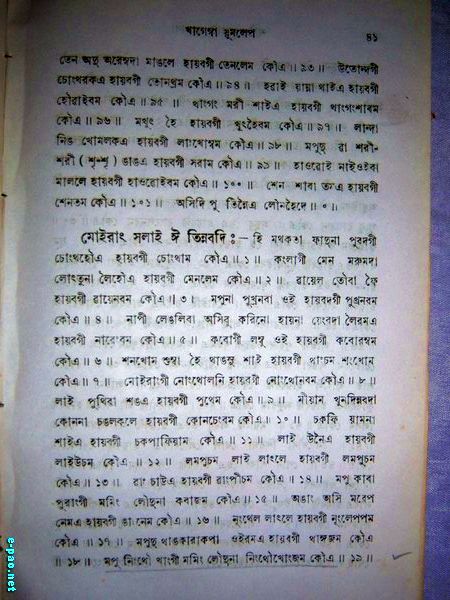 খাগেম্বা য়ুমলেপ ৪১
তেন অছু অরেম্বদা মাঙলে হায়বগী তেনলেম কৌএ॥ ৯৩॥ উতোন্দগী
চোংথরকএ হায়বগী তোনথ্রম কৌএ॥ ৯৪॥ হরাই হায়া থাইএ হায়বগী
হৌরাইবম কৌএ॥ ৯৫॥ থাংগং মরী শাইএ হায়বগী থাংগংশাবম
কৌএ॥ ৯৬॥ মথুং হৈ হায়বগী থুংহৈবম কৌএ॥ ৯৭॥ লান্দা
নিঙ খোমলকএ হায়বগী লাংখোম্বম কৌএ॥ ৯৮॥ মপুছু ৱা শরী-
শরী ( শৃ-শৃ ) ঙাঙএ হায়বগী সরাম কৌএ॥ ৯৯॥ হাওৱোই মাইওইবা
মাললে হায়বগী হাওৱোইবম কৌএ॥ ১০০॥ শেন শাবা ঙাএ হায়বগী
শেনতম কৌএ॥ ১০১॥ অসিদি পূ তিন্নৈএ লৌনহৈদে॥ ০॥
মোইরাং সলাই ঈ তিন্নবদি :— হি মথকতা ফাহুনা পুবদগী
চোংথহৌএ হায়বগী চোংথাম কৌএ॥ ১॥ কংলাগী মেন মরুমদা
লোংতুনা লৈহৌএ হায়বগী মেনলেম কৌএ॥ ২॥ ৱায়েল তৌবা ঙৈ
হায়বগী ৱায়েনবম কৌএ॥ ৩॥ মপুনা পুখ্রনবা ওই হায়বদগী পুখ্রনবম
কৌএ॥ ৪॥ নাপী লেঙলিবা অসিবু করিনো হায়না য়েংবদা লৈরমএ
হায়বগী নারেংবম কৌএ॥ ৫॥ কবোগী লম্বু ওই হায়বগী কবোরম্বম
কৌএ॥ ৬॥ শনখোম শুম্বা হৈ থাঙম্বু শাই হায়বগী থাংচম শংখোম
কৌএ॥ ৭॥ নোইরাংগী নোংথোলনি হায়বগী নোংথোনবম কৌএ॥ ৮॥
লাই পুথিবা শঙএ হায়বগী পুথেম কৌএ॥ ৯॥ নীয়াম খুনদিন্নবদা
কোননা চঙলকলে হায়বগী কোনচেংবম কৌএ॥ ১০॥ চকফি য়ামনা
শাইএ হায়বগী চকপাফিয়াম কৌএ॥ ১১॥ লাই উনৈএ হায়বগী
লাইউচম কৌএ॥ ১২॥ লমপুচম লাই লাংলে হায়বগী লমপুচম
কৌএ॥ ১৩॥ ৱা চাউএ হায়বগী ৱাংপীচম কৌএ॥ ১৪॥ মপু কাবা
পুৱাংগী মমিং লৌদুনা কবাজম কৌএ॥ ১৫॥ অঙাং অসি মরেপ
নেমএ হায়বগী ঙানেম কৌএ॥ ১৬॥ নুংথেল লাংলে হায়বগী নুংলেপপম
কৌএ॥ ১৭॥ মপুছু থাঙকারাকপা ওইরমএ হায়বগী থাঙ্গজম কৌএ
॥ ১৮॥ মপু নিংথৌ থাংগী মমিং লৌদুনা নিংথৌখোংজম কৌএ॥ ১৯॥
e-pao.net